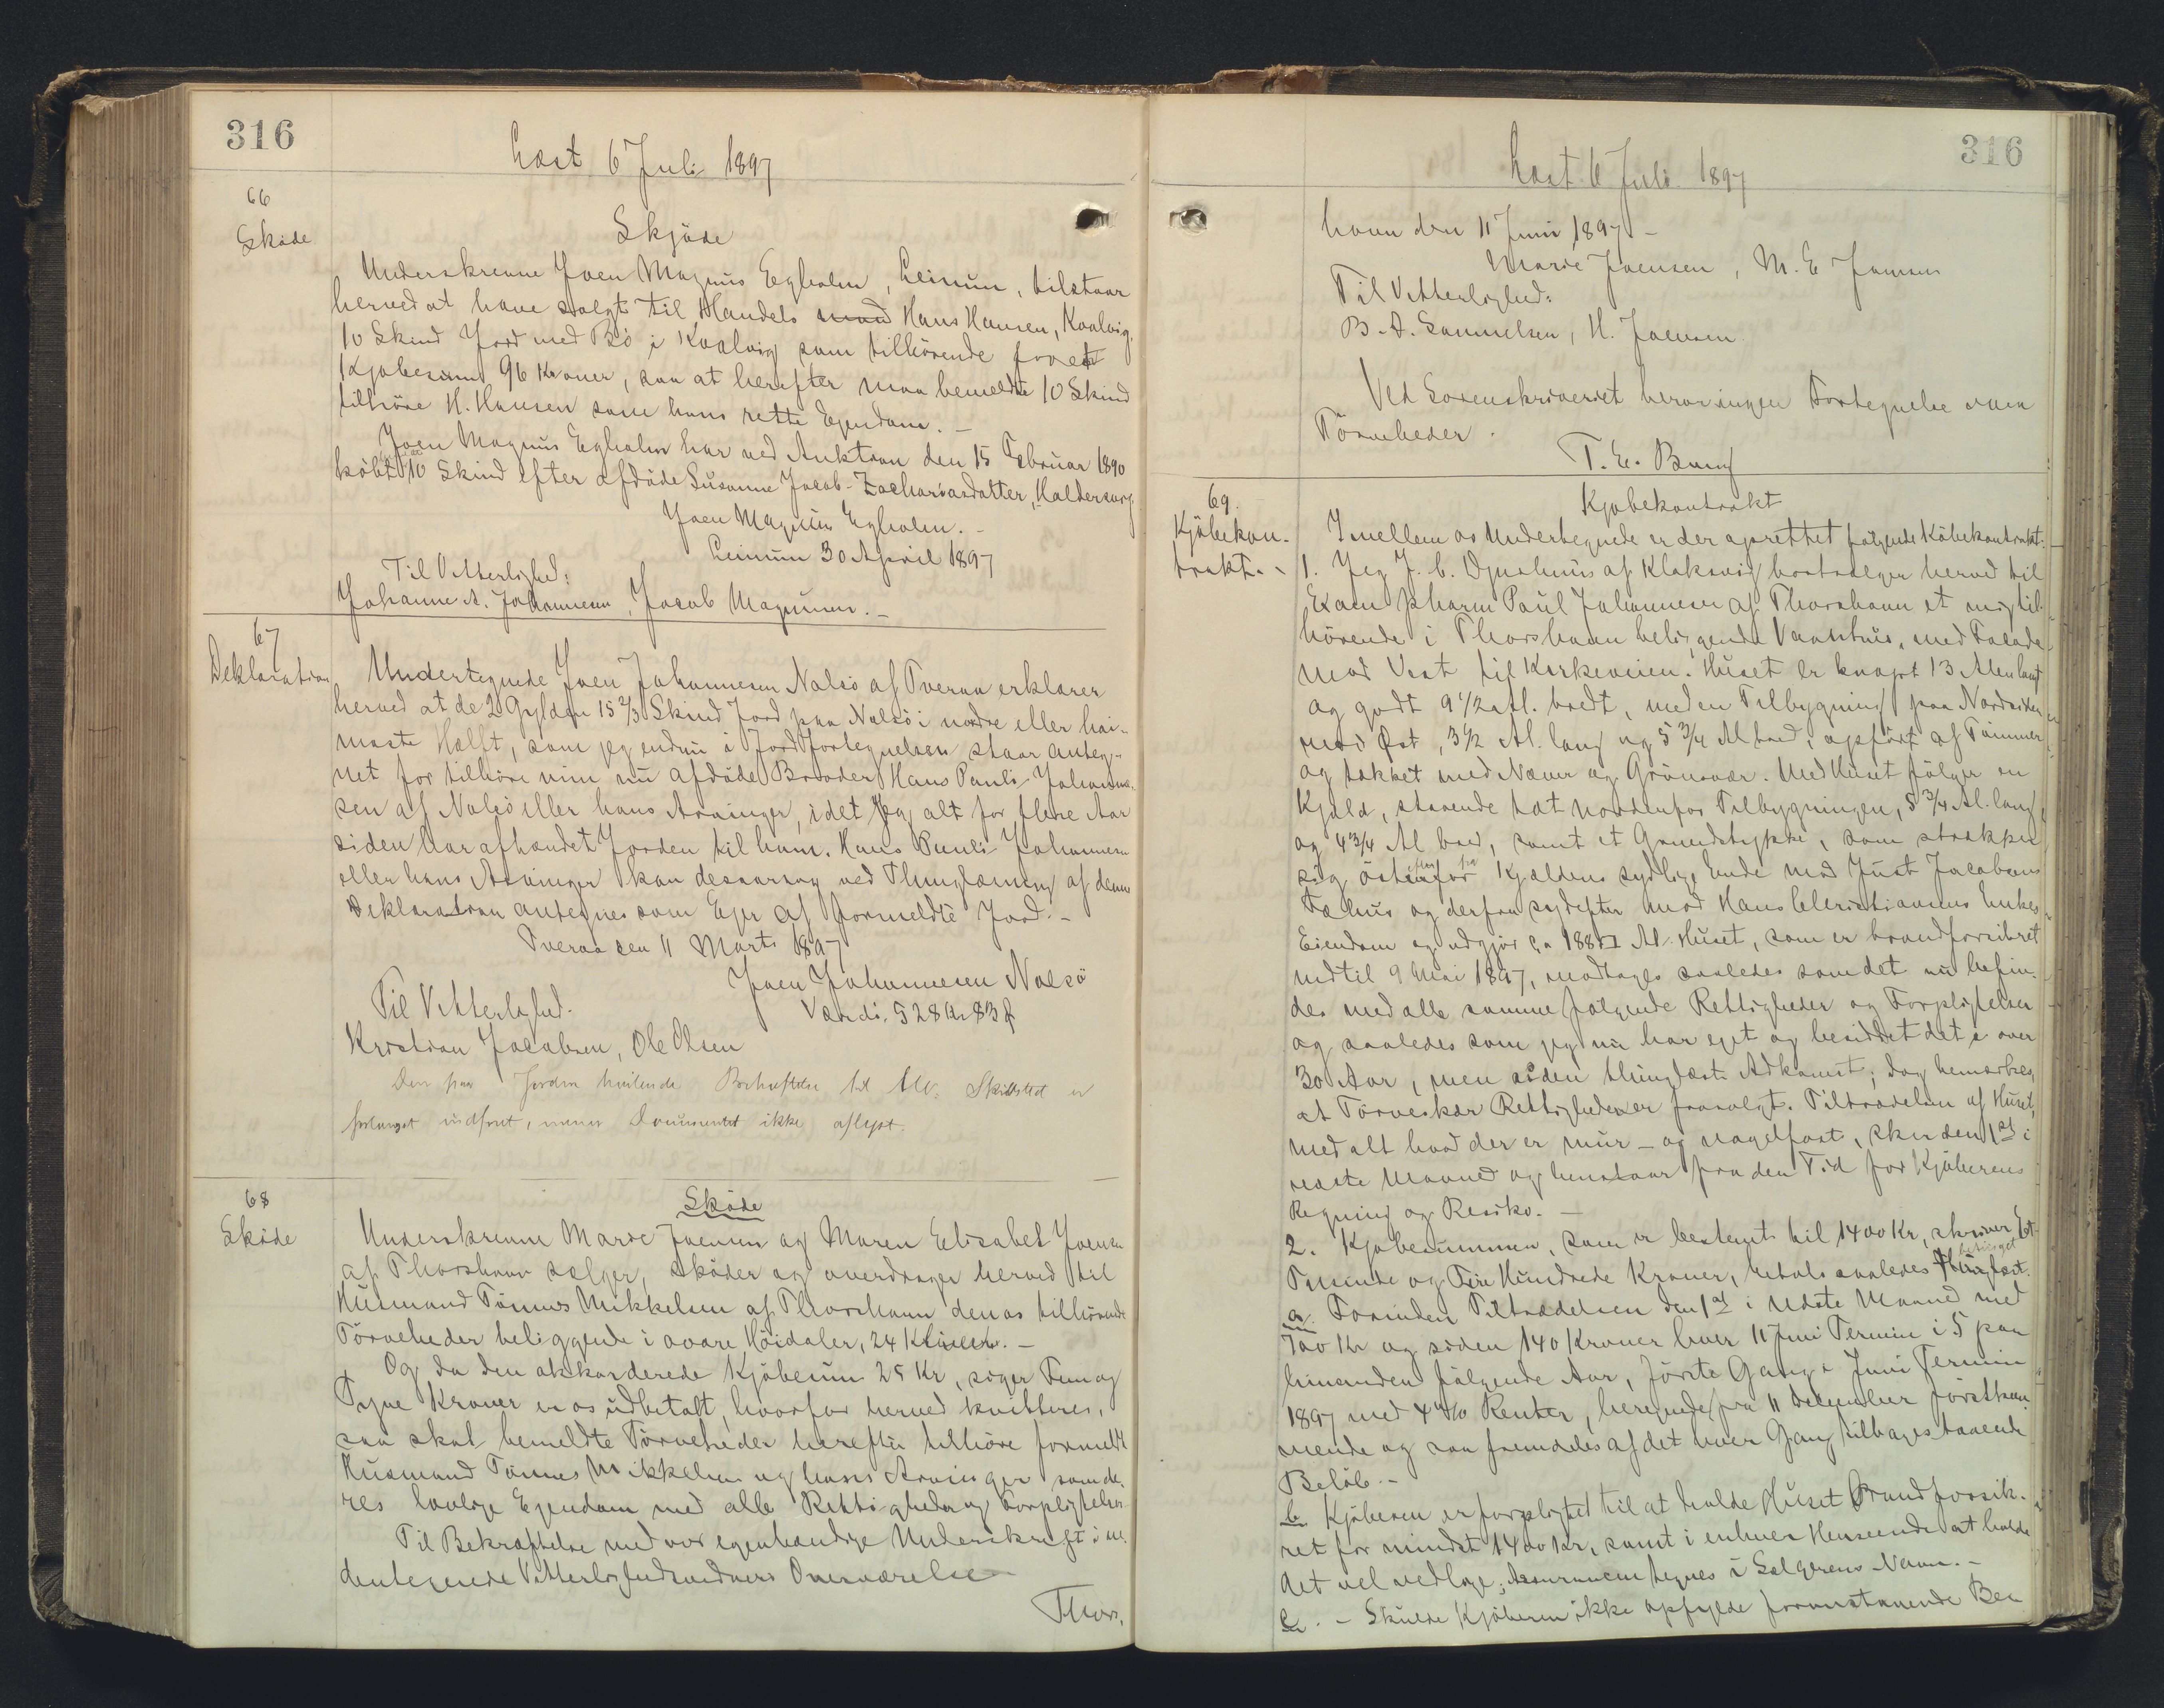 316
Læst 6 Juli 1897
66
Skøde
Skjøde
Underskrevne Joen Magnus Egholm, Leinum, tilstaar
herved at have solgt til Handels mand Hans Hansen, Kvalvig,
10 Skind Jord med Bø i Kvalvig som tilhørende for et
Kjøbesum 96 Kroner, saa at herefter maa bemeldte 10 Skind
tilhøre H. Hansen som hans rette Ejendom. –
Joen Magnus Egholm har ved Auktion den 15 Februar 1890
købt 10 Skind efter afdøde Susanne Jacob-Zachariasdatter, Haldersvig.
Joen Magnus Egholm. –
Leinum 30 April 1897
Til Vitterlighed:
Johannes A. Johannesen, Jacob Magnusen. –
67
Deklaration
Undertegnede Joen Johannesen Nolsø af Tveraa erklærer
herved at de 2 Gylden 15 2/3 Skind Jord paa Nolsø i nordre eller hei-
maste Hælft, som jeg endnu i Jordfortegnelsen staar anteg-
net for tilhøre min nu afdøde Broder Hans Pauli Johanne-
sen af Nolsø eller hans Arvinger, idet jeg alt for flere Aar
siden har afhændet Jorden til ham. Hans Pauli Johannesen
eller hans Arvinger kan desaarsag ved Thinglæsning af denne
Deklaration antegnes som Ejer af formeldte Jord. –
Tveraa den 11 Marts 1897
Joen Johannesen Nolsø
Til Vitterlighed.
Værdi. 528 Kr 83
Kristian Jacobsen, Ole Olsen
Den paa Jorden hvilende Behæftelse til
forlangst indfriet, menes Documentet ikke aflyst.
68
Skøde
Skøde
Underskrevne Marie Joensen og Maren Elisabet Joensen
af Thorshavn sælger, skøder og overdrager herved til
Husmand Tømmes Mikkelsen af Thorshavn den os tilhørende
Tørveheder beliggende i ovare Høidaler, 24 –
Og da den akkorderede Kjøbesum 25 Kr, siger Fem og
Tyve Kroner er os udbetalt, hvorfor herved kvitteres,
saa skal bemeldte Tørveheder herefter tilhøre formeldte
Husmand Tømmes Mikkelsen og hans Arvinger som de-
res lovlige Ejendom med alle Rettigheder og Forpligtelser.
Til Bekræftelse med vor egenhændige Underskrift i ne-
dentegnede Vitterlighedsvidners Overværelse
Thors,
316
Læst 6 Juli 1897
havn den 11 Juni 1897 –
Marie Joensen, M. E Joensen
Til Vitterlighed:
B. A. Samuelsen, H. Joensen
Ved Sorenskriveriet beror ingen Fortegnelse over
Tørveheder.
T. E. Bang
69.
Kjøbekon-
trakt. –
Kjøbekontrakt
Imellem os Undertegnede er der oprettet følgende Købekontrakt:
1. Jeg J. C. Djurhuus af Klaksvig bortsælger herved til
Exam pharm Paul Johannesen af Thorshavn et mig til-
hørende i Thorshavn beliggende Vaanhus, med Facade
mod Vest til Kirkeveien. Huset er knapt 13 Alen langt
og godt 9 1/2 Al. bredt, med en Tilbygning paa Nordsiden
mod Øst, 3 1/2 Al. lang og 5 3/4 Al bred, opført af Tømmer
og tækket med Næver og Grønsvær. Med Huset følger en
Kjæld, staaende tæt nordenfor Tilbygningen, 5 3/4 Al. lang,
og 4 3/4 Al bred, samt et Grundstykke, som strækker
sig østenfor Kjældens sydlige Ende mod Just Jacobsens
Fæhus og derfra sydefter mod Hans Christiansens Enkes
Eiendom og udgjør ca 188 □ Al. Huset, som er brandforsikret
indtil 9 Mai 1897, modtages saaledes som det nu befin-
des med alle samme følgende Rettigheder og Forpligtelser
og saaledes som jeg nu har ejet og besiddet det i over
30 Aar, men uden thinglæst Adkomst; dog bemærkes
at Tørveskær Rettigheden er frasolgt. Tiltrædelsen af Huset,
med alt hvad der er mur- og nagelfast, sker den 1st i
næste Maaned og henstaar fra den Tid for Kjøberens
Regning og Resiko. –
2. Kjøbesummen, som er bestemt til 1400 Kr, skriver Et-
Tusinde og Fire Hundrede Kroner, betales saaledes
a. Forinden Tiltrædelsen den 1st i næste Maaned med
700 Kr og siden 140 Kroner hver 11 Juni Termin i 5 paa
hinanden følgende Aar, første Gang i Juni Termin
1897 med 4 % Renter, beregnede fra 11 December førstkom
mende og saa fremdeles af det hver Gang tilbagestaaende
Beløb. –
b. Kjøberen er forpligtet til at holde Huset Brandforsik-
ret for mindst 1400 Kr, samt i enhver Henseende at holde
det vel vedlige; Assurancen tegnes i Sælgerens Navn. –
c. – Skulde Kjøberen ikke opfylde foranstaaende Be-